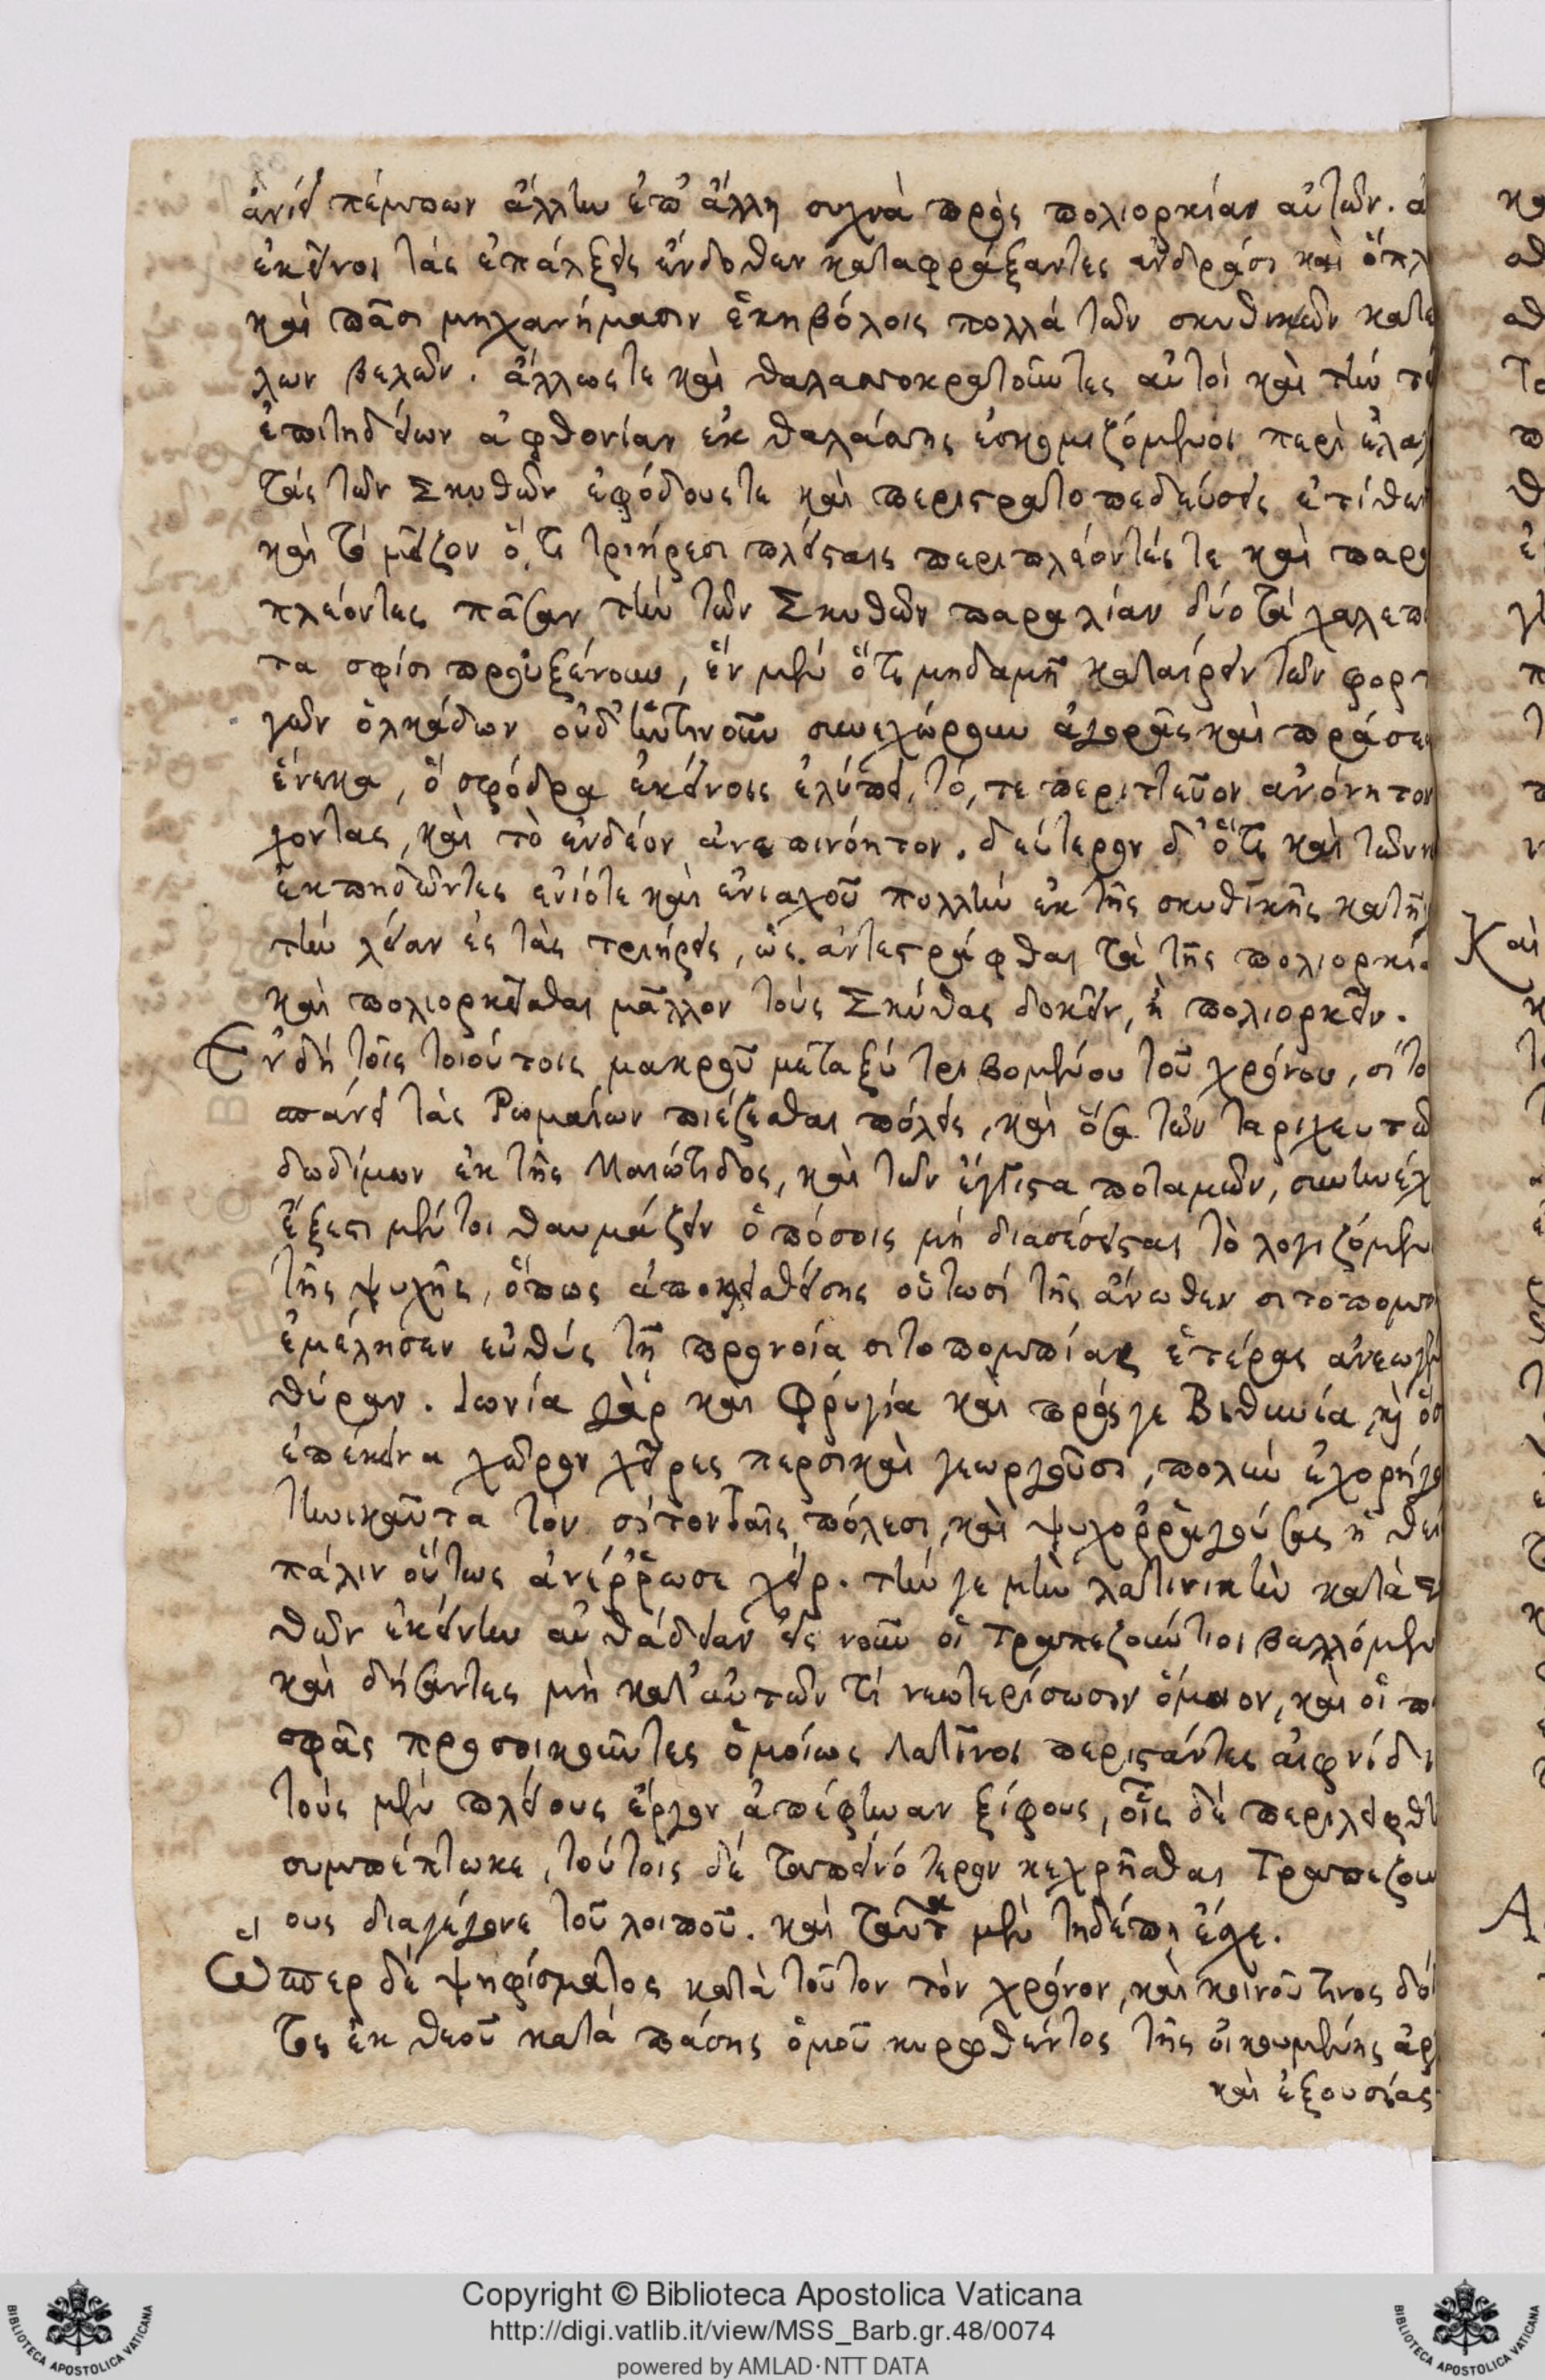 ἀνίει πέμπων ἄλλην ἐπ' ἄλλη συχνὰ πρὸς πολιορκίαν αὐτῶν. ἀ
ἐκεῖνοι τὰς ἐπάλξεις ἔνδοθεν καταφράξαντες ἀνδράσι καὶ ὅπλ
καὶ πᾶσι μηχανήμασιν ἑκηβόλοις πολλὰ τῶν σκυθικῶν κατε
λων βελῶν. ἄλλωστε καὶ θαλασσοκρατοῦντες αὐτοὶ καὶ τὴν τῶ
ἐπιτηδείων ἀφθονίαν ἐκ θαλάσσης ἐσκομιζόμενοι περὶ ἐλα
τὰς τῶν Σκυθῶν ἐφόδους τε καὶ περιστρατοπεδεύσεις ἐτίθεν
καὶ τὸ μεῖζον ὅτι τριήρεσι πλείσταις περιπλέοντές τε καὶ παρα
πλέοντες πᾶσαν τὴν τῶν Σκυθῶν παραλίαν δύο τὰ χαλεπώ
τα σφίσι προὐξένουν, ἓν μὲν ὅτι μηδαμῆ καταίρειν τῶν φορτ
γῶν ὁλκάδων οὐδ' ἡντινοῦν συνεχώρουν ἀγορᾶς καὶ πράσεω
ἕνεκα, ὃ σφόδρα ἐκείνοις ἐλύπει, τό, τε περιττεῦον ἀνόνητον
χοντας, καὶ τὸ ἐνδέον ἀνεπινόητον. δεύτερον δ' ὅτι καὶ τῶν ν
ἐκπηδῶντες ἐνίοτε καὶ ἐνιαχοῦ πολλὴν ἐκ τῆς σκυθικῆς κατῆγ
τὴν λείαν ἐς τὰς τριήρεις, ὡς ἀντεστράφθαι τὰ τῆς πολιορκία
καὶ πολιορκεῖσθαι μᾶλλον τοὺς Σκύθας δοκεῖν, ἢ πολιορκεῖν.
Ἐν δὴ τοῖς τοιούτοις μακροῦ μεταξὺ τριβομένου τοῦ χρόνου, σίτο
σπάνει τὰς Ῥωμαίων πιέζεσθαι πόλεις, καὶ ὅσα τῶν ταριχευτῶ
δωδίμων ἐκ τῆς Μαιώτιδος, καὶ τῶν ἔγγιστα ποταμῶν, συντυνέχ
ἔξεστι μέντοι θαυμάζειν ὁπόσοις μὴ διασέσεισται τὸ λογιζόμεν
τῆς ψυχῆς, ὅπως ἀποκλεισθείσης οὑτωσὶ τῆς ἄνωθεν σιτοπομπ
ἐμέλησεν εὐθὺς τῇ προνοία σιτοπομπίας ἑτέρας ἀνεωγῆ
θύραν. Ἰωνία γὰρ καὶ Φρυγία καὶ πρός γε Βιθυνία, καὶ ὅσ
ἐπέκεινα χῶρον χεῖρες περσικαὶ γεωργοῦσι, πολὺν ἐχορήγο
τηνικαῦτα τὸν σῖτον ταῖς πόλεσι, καὶ ψυχορραγούσας ἡ θεί
πάλιν οὕτως ἀνέρρωσε χείρ. τήν γε μὴν λατινικὴν κατὰ σκ
θῶν ἐκείνην αὐθάδειαν εἰς νοῦν οἱ Τραπεζούντιοι βαλλόμεν
καὶ δήσαντες μὴ κατ' αὐτῶν τὶ νεωτερίσωσιν ὅμοιον, καὶ οἱ π
σφᾶς προσοικοῦντες ὁμοίως Λατῖνοι περιστάντες αἰφνίδι
τοὺς μὲν πλείους ἔργον ἀπέφηναν ξίφους, οἷς δὲ περιλειφθ
συμπέπτωκε, τούτοις δὲ ταπεινότερον κεχρῆσθαι Τραπεζουν
ους διαγέγονε τοῦ λοιποῦ. καὶ ταῦτα μὲν τηδέπη ἔσχε.
Ὥσπερ δὲ ψηφίσματος κατὰ τοῦτον τὸν χρόνον, καὶ κοινοῦ τινος δό
τος ἐκ θεοῦ κατὰ πάσης ὁμοῦ κυρωθέντος τῆς οἰκουμένης ἀρ
καὶ ἐξουσίας
Copyright © Biblioteca Apostolica Vaticana
http://digi.vatlib.it/view/MSS_Barb.gr.48/0074
powered by AMLAD·NTT DATA
BIBLIOTECA APOSTOLICA VATICANA
BIBLIOTECA APOSTOLICA VATICANA